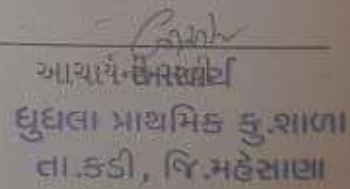 આચાર્યની
ઘુઘલા પ્રાથમિક કુ.શાળા
તા.કડી, જિ.મહેસાણા